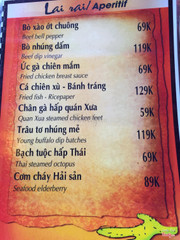 Lai rai/ Aperitif
Bò xào ớt chuông 69K
Beef bell pepper
Bò nhúng dấm 119K
Beef dip vinegar
Ức gà chiên mắm 69K
Fried chicken breast sauce
Cá chiên xù - Bánh tráng 129K
Fried fish - Ricepaper
Chân gà hấp quán Xưa 59K
Quan Xua steamed chicken feet
Trâu tơ nhúng mẻ 119K
Young buffalo dip batches
Bạch tuộc hấp Thái 69K
Thai steamed octopus
Cơm cháy Hải sản 89K
Seafood elderberry